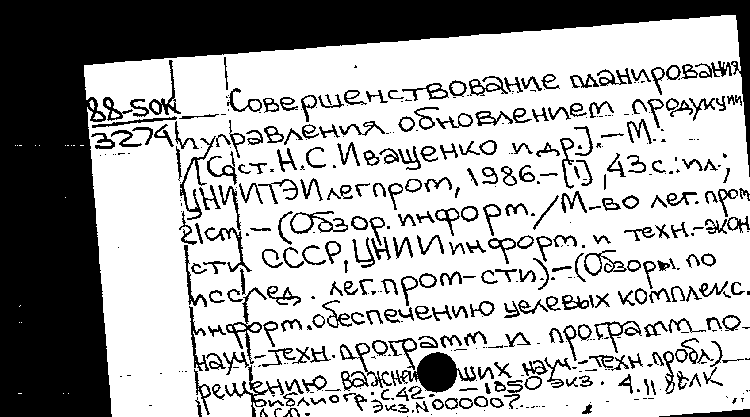 88-50К Совершенствование планирования
3274 и управления обновлением продукции
/[Сост. Н.С. Иващенко и др.]. - М.:
ЦНИИТЭИлегпром, 1986. - [1], 43 с.: ил.;
21 см. - (Обзор. информ. / М-во лег. пром
сти СССР, ЦНИИ информ. и техн.-экон
исслед. лег. пром-сти). - (Обзоры по
информ. обеспечению целевых комплекс.
науч.-техн. программ и программ по
решению важнейших науч.-техн. пробл.)
Библиогр.: с. 42 - 1850 экз. 4.11.88
Экз. N000007